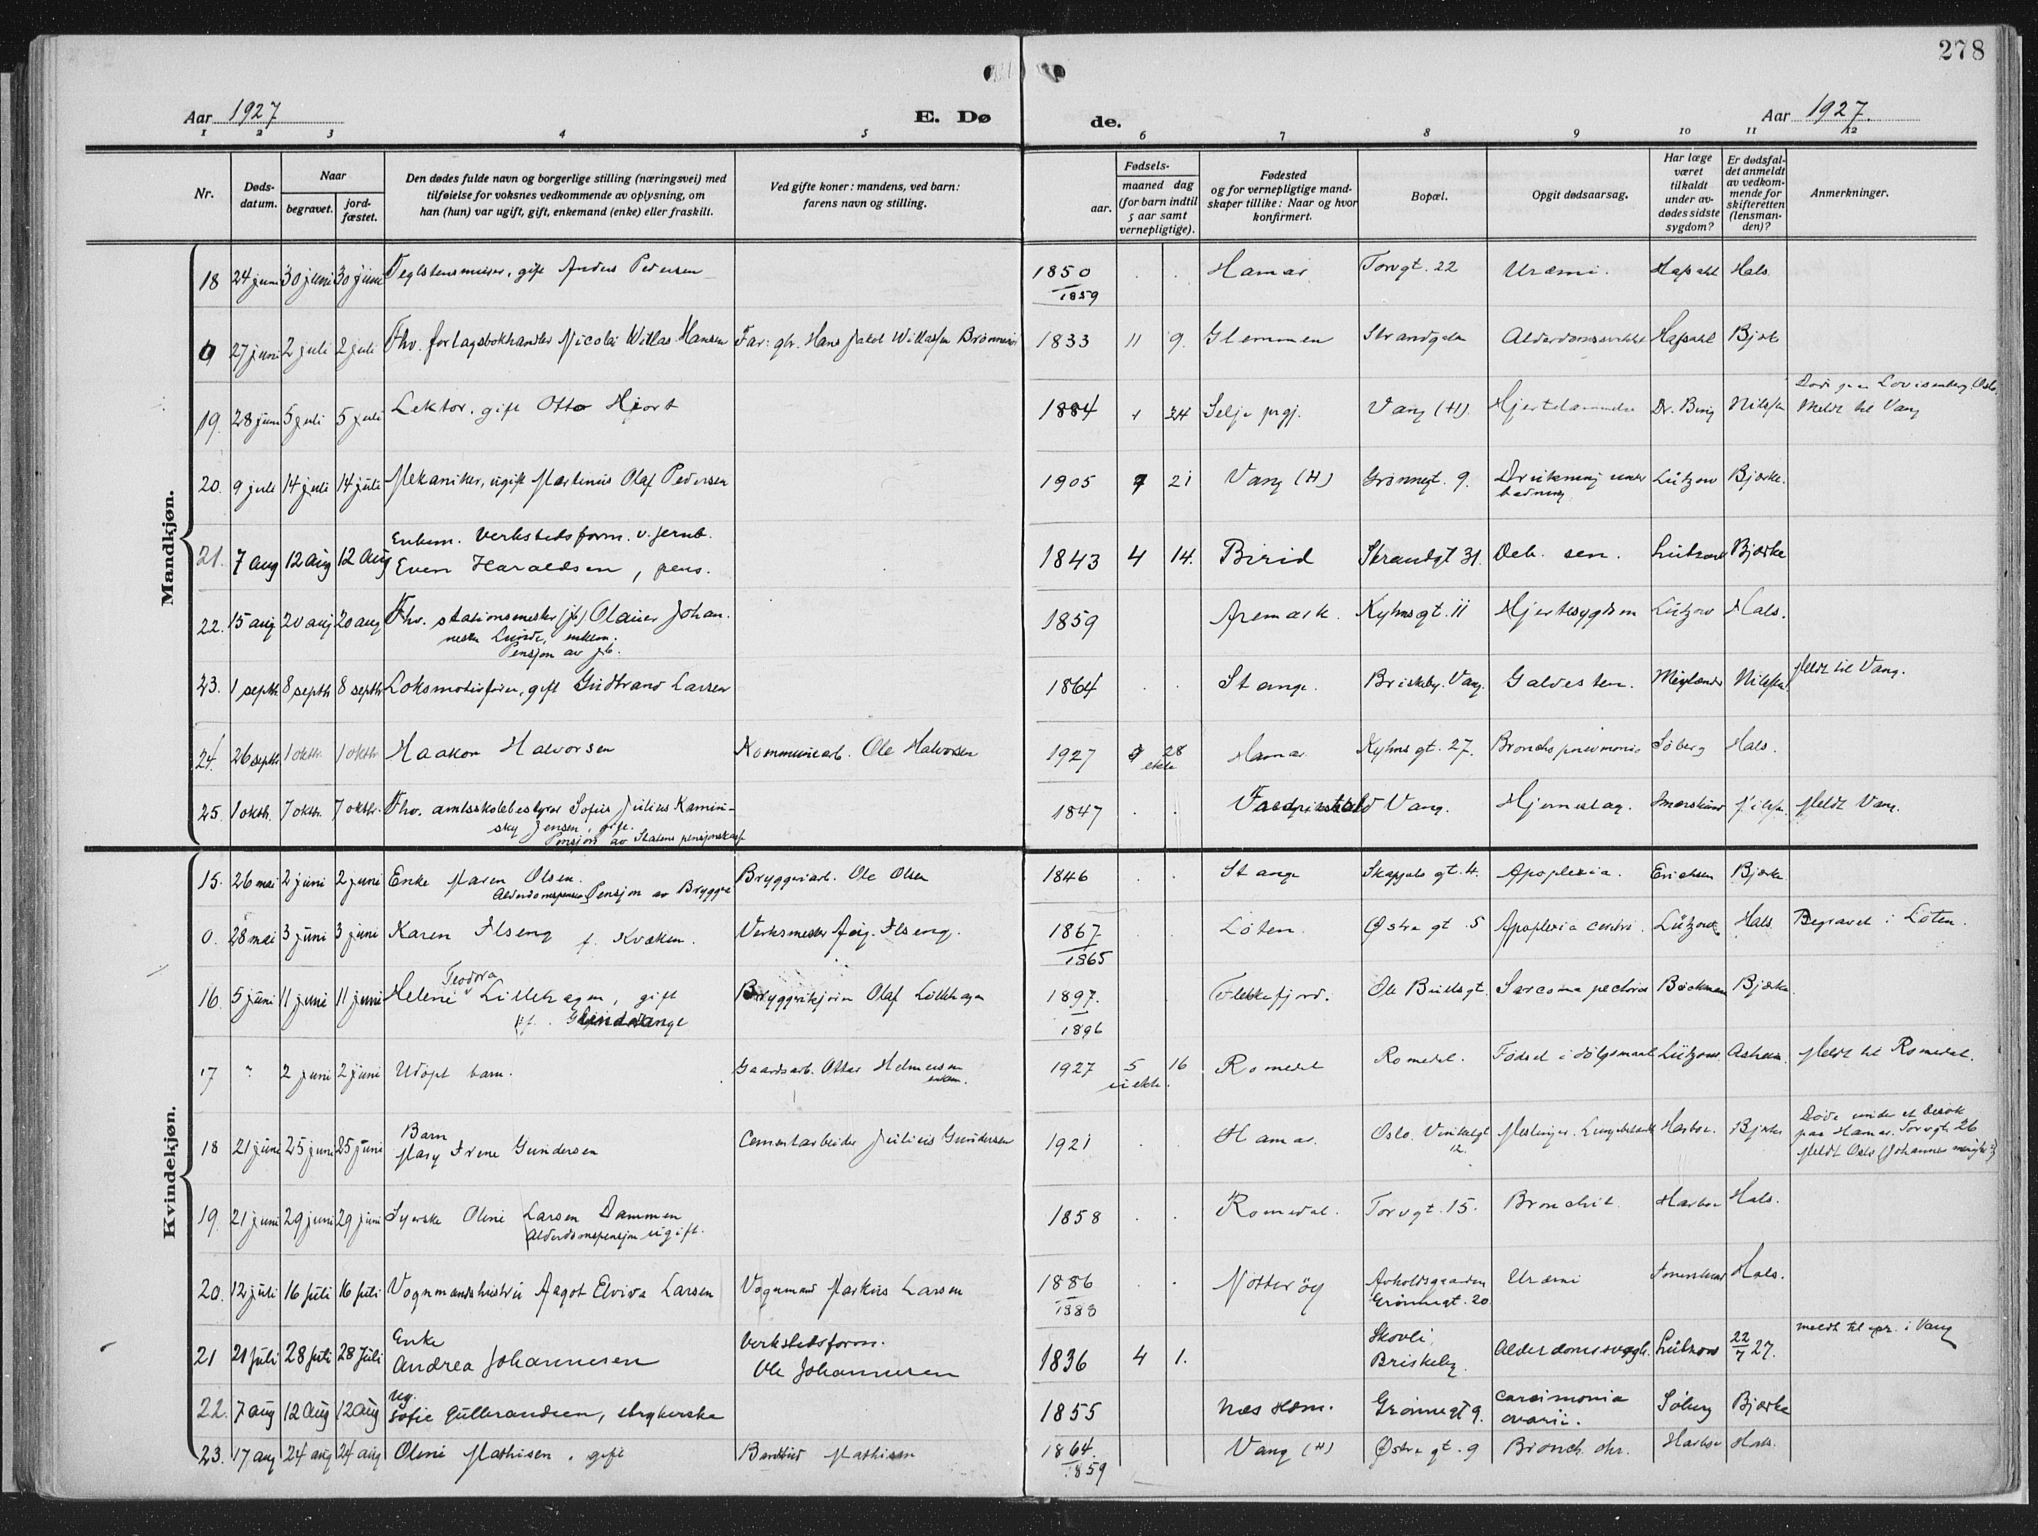 278
Aar 1927
E. Dø
de.
Aar 1927.
1 2 3 4 5 6 7 8 9 10 11 12
Nr.
Døds-
datum.
Naar
begravet.
jord-
fæstet.
Den dødes fulde navn og borgerlige stilling (næringsvei) med
tilføielse for voksnes vedkommende av oplysning, om
han (hun) var ugift, gift, enkemand (enke) eller fraskilt.
Ved gifte koner: mandens, ved barn:
farens navn og stilling.
Fødsels-
aar.
maaned dag
(for barn indtil
5 aar samt
vernepligtige).
Fødested
og for vernepligtige mand-
skaper tillike: Naar og hvor
konfirmert.
Bopæl.
Opgit dødsaarsag.
Har læge
været
tilkaldt
under av-
dødes sidste
sygdom?
Er dødsfal-
det anmeldt
av vedkom-
mende for
skifteretten
(lensman-
den)?
Anmerkninger.
Mandkjøn.
18 24 juni 30 juni 30 juni Teglstensmurer, gift Anders Pedersen 1850 . . Hamar Torvgt. 22 Uræmi. Hals.
1859
0 27 juni 2 juli 2 juli Fhv. forlagsbokhandler Nicolai Hansen Far: Hans Jakob 1833 11 9. Glemmen Strandgaten Bjørke
19. 28 juni 5 juli 5 juli Lektor, gift Otto Hjort 1884 24 Selje prgj. Vang (H). Dr. Bing Nilssen Døde paa Lovisenberg, Oslo.
Meldt til Vang
20. 9 juli 14 juli 14 juli Mekaniker, ugift Martinius Olaf Pedersen 1905 7 21 Vang (H) Grønnegt. 9. Drukning under Lützow Bjørke.
badning
21. 7 aug 12 aug 12 aug Enkem. Verkstedsform. v. jernb.
Even Haraldsen, pens. 1843 4 14. Birid Strandgt 31. Deb. sen. Lützow Bjærke
22. 15 aug 20 aug 20 aug Fhv. stationsmester (jb) Olaus Johan-
nesen Lunde, enkem.
Pensjon av jb. 1859 Aremark. Kyhnsgt. 11 Hjertesygdom Lützow Hals.
23. 1 septb. 8 septb. 8 septb. Lokomotivfører, gift Gudbrand Larsen 1864 . . Stange. Briskeby. Vang. Galdesten. Nilssen Meldt til Vang.
24. 26 septb. 1 oktb. 1 oktb. Haakon Halvorsen Kommunearb. Ole Halvorsen 1927 28 Hamar Kyhnsgt. 27. Bronchopneumonia Søberg Hals.
ekte
25. 1 oktb. 7 oktb. 7 oktb. Fhv. amtsskolebestyrer Sofus Julius Kamin-
sky Jensen, gift.
Pensjon av Statens pensjonskasse 1847 . . Vang. Hjerneslag. Meldt Vang.
Kvindekjøn.
15. 26 mai 2 juni 2 juni Enke Maren Olsen. Bryggeriarb. Ole Olsen 1846 . . Stange gt. 4. Apoplexia. Erichsen Bjørke
Alderdomspension Pensjon av Bryggeri
0. 28 mai 3 juni 3 juni Karen Ilseng f. Kvæken. Verksmester Aug. Ilseng. 1867 . . Løten. Østre gt. 5 Apoplexia cerebri. Lützow Hals. Begravet i Løten.
1865
16. 5 juni 11 juni 11 juni Helene Teodora Lillehagen, gift Bryggerikjører Olaf Lillehagen 1897. Flekkefjord. Ole Bullsgt. Sarcoma pectoris Bøckman Bjørke
1896
17 " 2 juni 2 juni Udøpt barn. Gaardsarb. Ottar Helmersen 1927 5 16 Romedal Romedal. Født i dølgsmaal Lützow Meldt til Romedal.
enkem. uekte.
18 21 juni 25 juni 25 juni Barn
Mary Irene Gundersen Cementarbeider Julius Gundersen 1921 Hamar. Oslo. Harboe. Bjørke Døde under et besøk
12. paa Hamar. Torvgt. 26
Meldt Oslo (Johannes menighet)
19. 21 juni 29 juni 29 juni Syerske Oline Larsen Dammen 1858 . . Romedal. Torvgt. 15. Bronchit. Harboe Hals.
Alderdomspensjon ugift.
20. 12 juli 16 juli 16 juli Vognmandshustru Aagot Elvira Larsen Vognmand Markus Larsen 1886 . . Nøtterøy Avholdsgaarden Uræmi Hals.
1883 Grønnegt. 20.
21 21 juli 28 juli 28 juli Enke
Andrea Johannesen Verkstedsform.
Ole Johannesen 1836 4 1. Skovli
Briskeby. Lützow 22/7 27. meldt til spr. i Vang
22. 7 aug 12 aug 12 aug Ug.
Sofie Gulbrandsen, strykerske 1855 Næs Hdm. Grønnegt 9. Carcinoma
ovarii. Søberg Bjærke
23. 17 aug 24 aug 24 aug Oline Mathisen, gift Mathisen 1864. Vang (H) Østre gt. 9 Bronch. chr. Harboe Hals.
1859